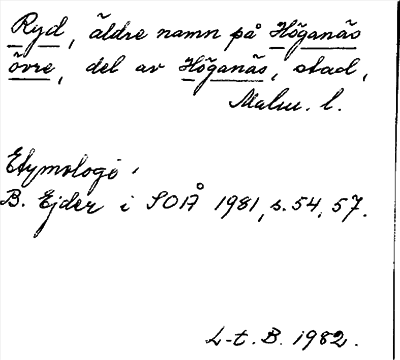 Ryd, äldre namn på Höganäs
övre, del av Höganäs, stad,
Malm. l.
Etymologi,
B. Ejder i SOÅ 1981, s. 54, 57.
L-t. B. 1982.